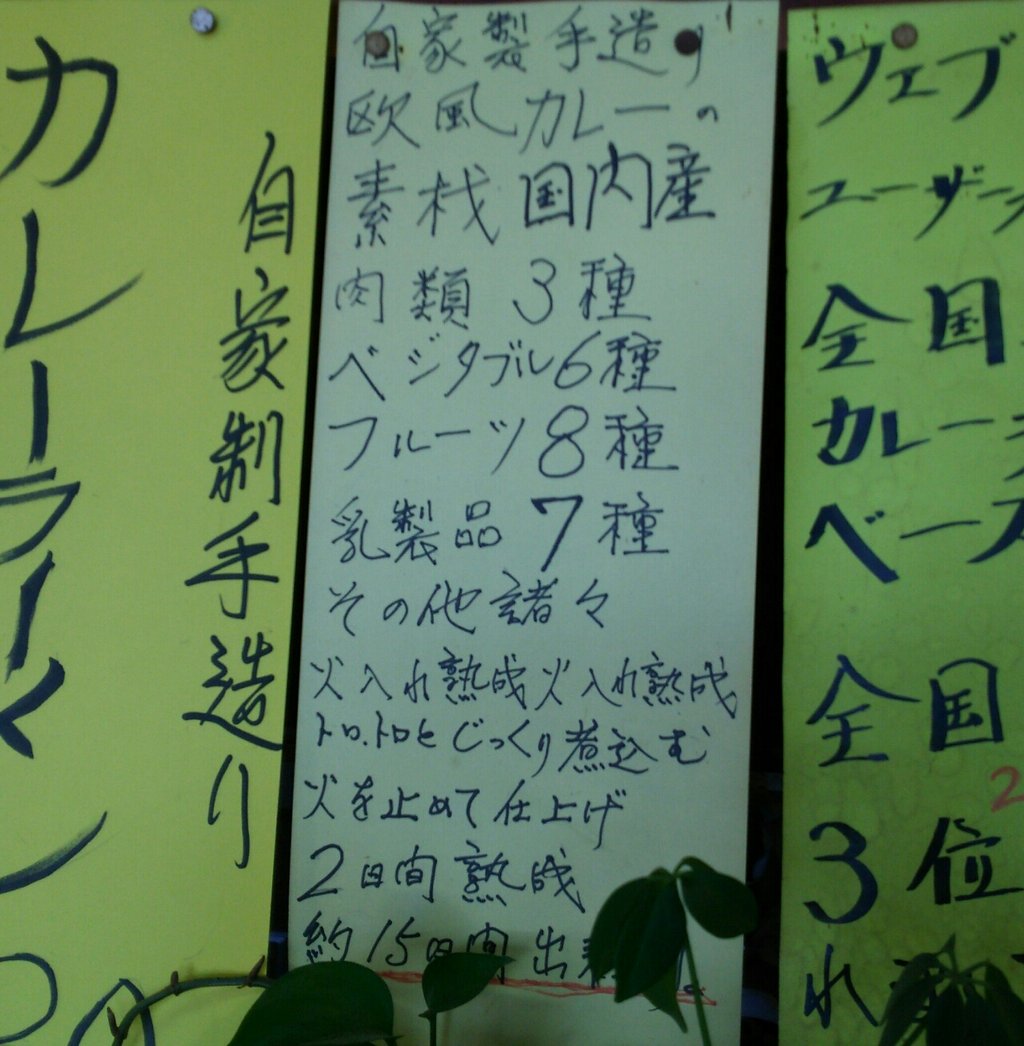 カレーライス
自家製手造り
自家製手造り
欧風カレーの
素材国内産
肉類 3種
ベジタブル6種
フルーツ8種
乳製品 7種
その他諸々
火入れ熟成火入れ熟成
トロ.トロとじっくり煮込む
火を止めて仕上げ
2日間熟成
約15日間出
ウェブ
ユーザー
全国
カレー
ベース
全国
2
3位
れ